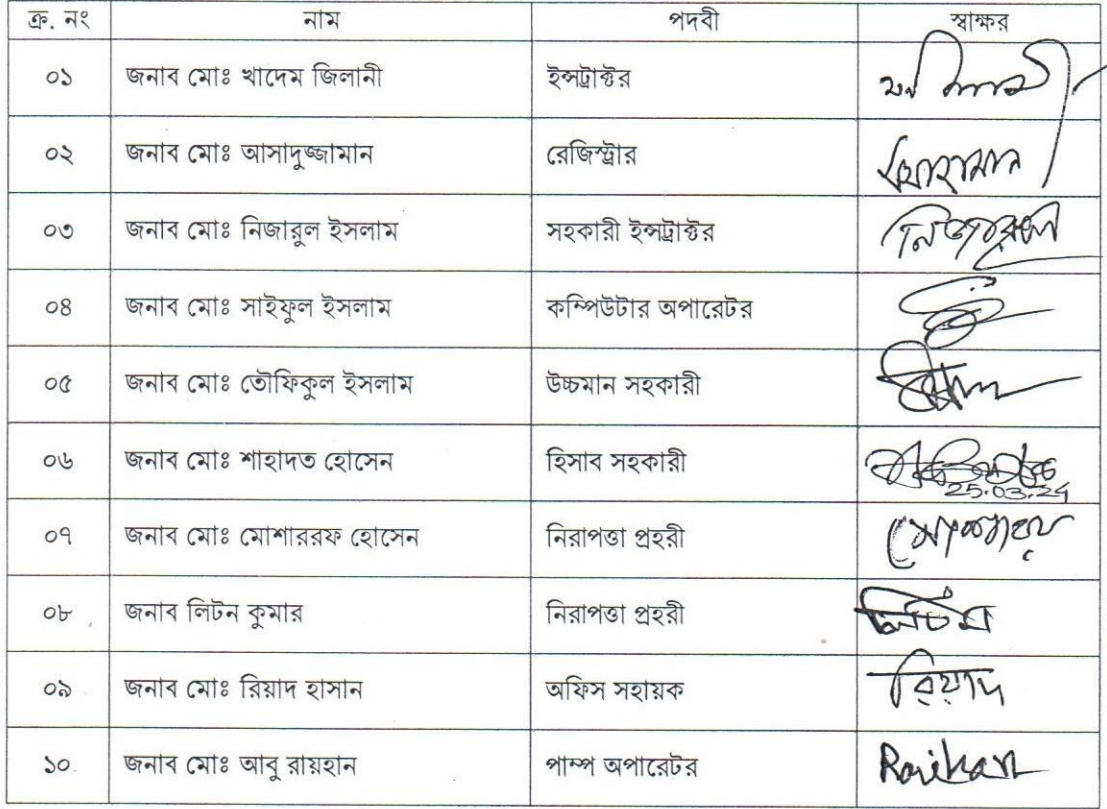 ক্র. নং নাম পদবী স্বাক্ষর
০১ জনাব মোঃ খাদেম জিলানী ইন্সট্রাক্টর
০২ জনাব মোঃ আসাদুজ্জামান রেজিস্ট্রার
০৩ জনাব মোঃ নিজারুল ইসলাম সহকারী ইন্সট্রাক্টর
০৪ জনাব মোঃ সাইফুল ইসলাম কম্পিউটার অপারেটর
০৫ জনাব মোঃ তৌফিকুল ইসলাম উচ্চমান সহকারী
০৬ জনাব মোঃ শাহাদত হোসেন হিসাব সহকারী
25.03.24
০৭ জনাব মোঃ মোশাররফ হোসেন নিরাপত্তা প্রহরী
০৮ জনাব লিটন কুমার নিরাপত্তা প্রহরী লিটন
০৯ জনাব মোঃ রিয়াদ হাসান অফিস সহায়ক রিয়াদ
১০ জনাব মোঃ আবু রায়হান পাম্প অপারেটর Raihan